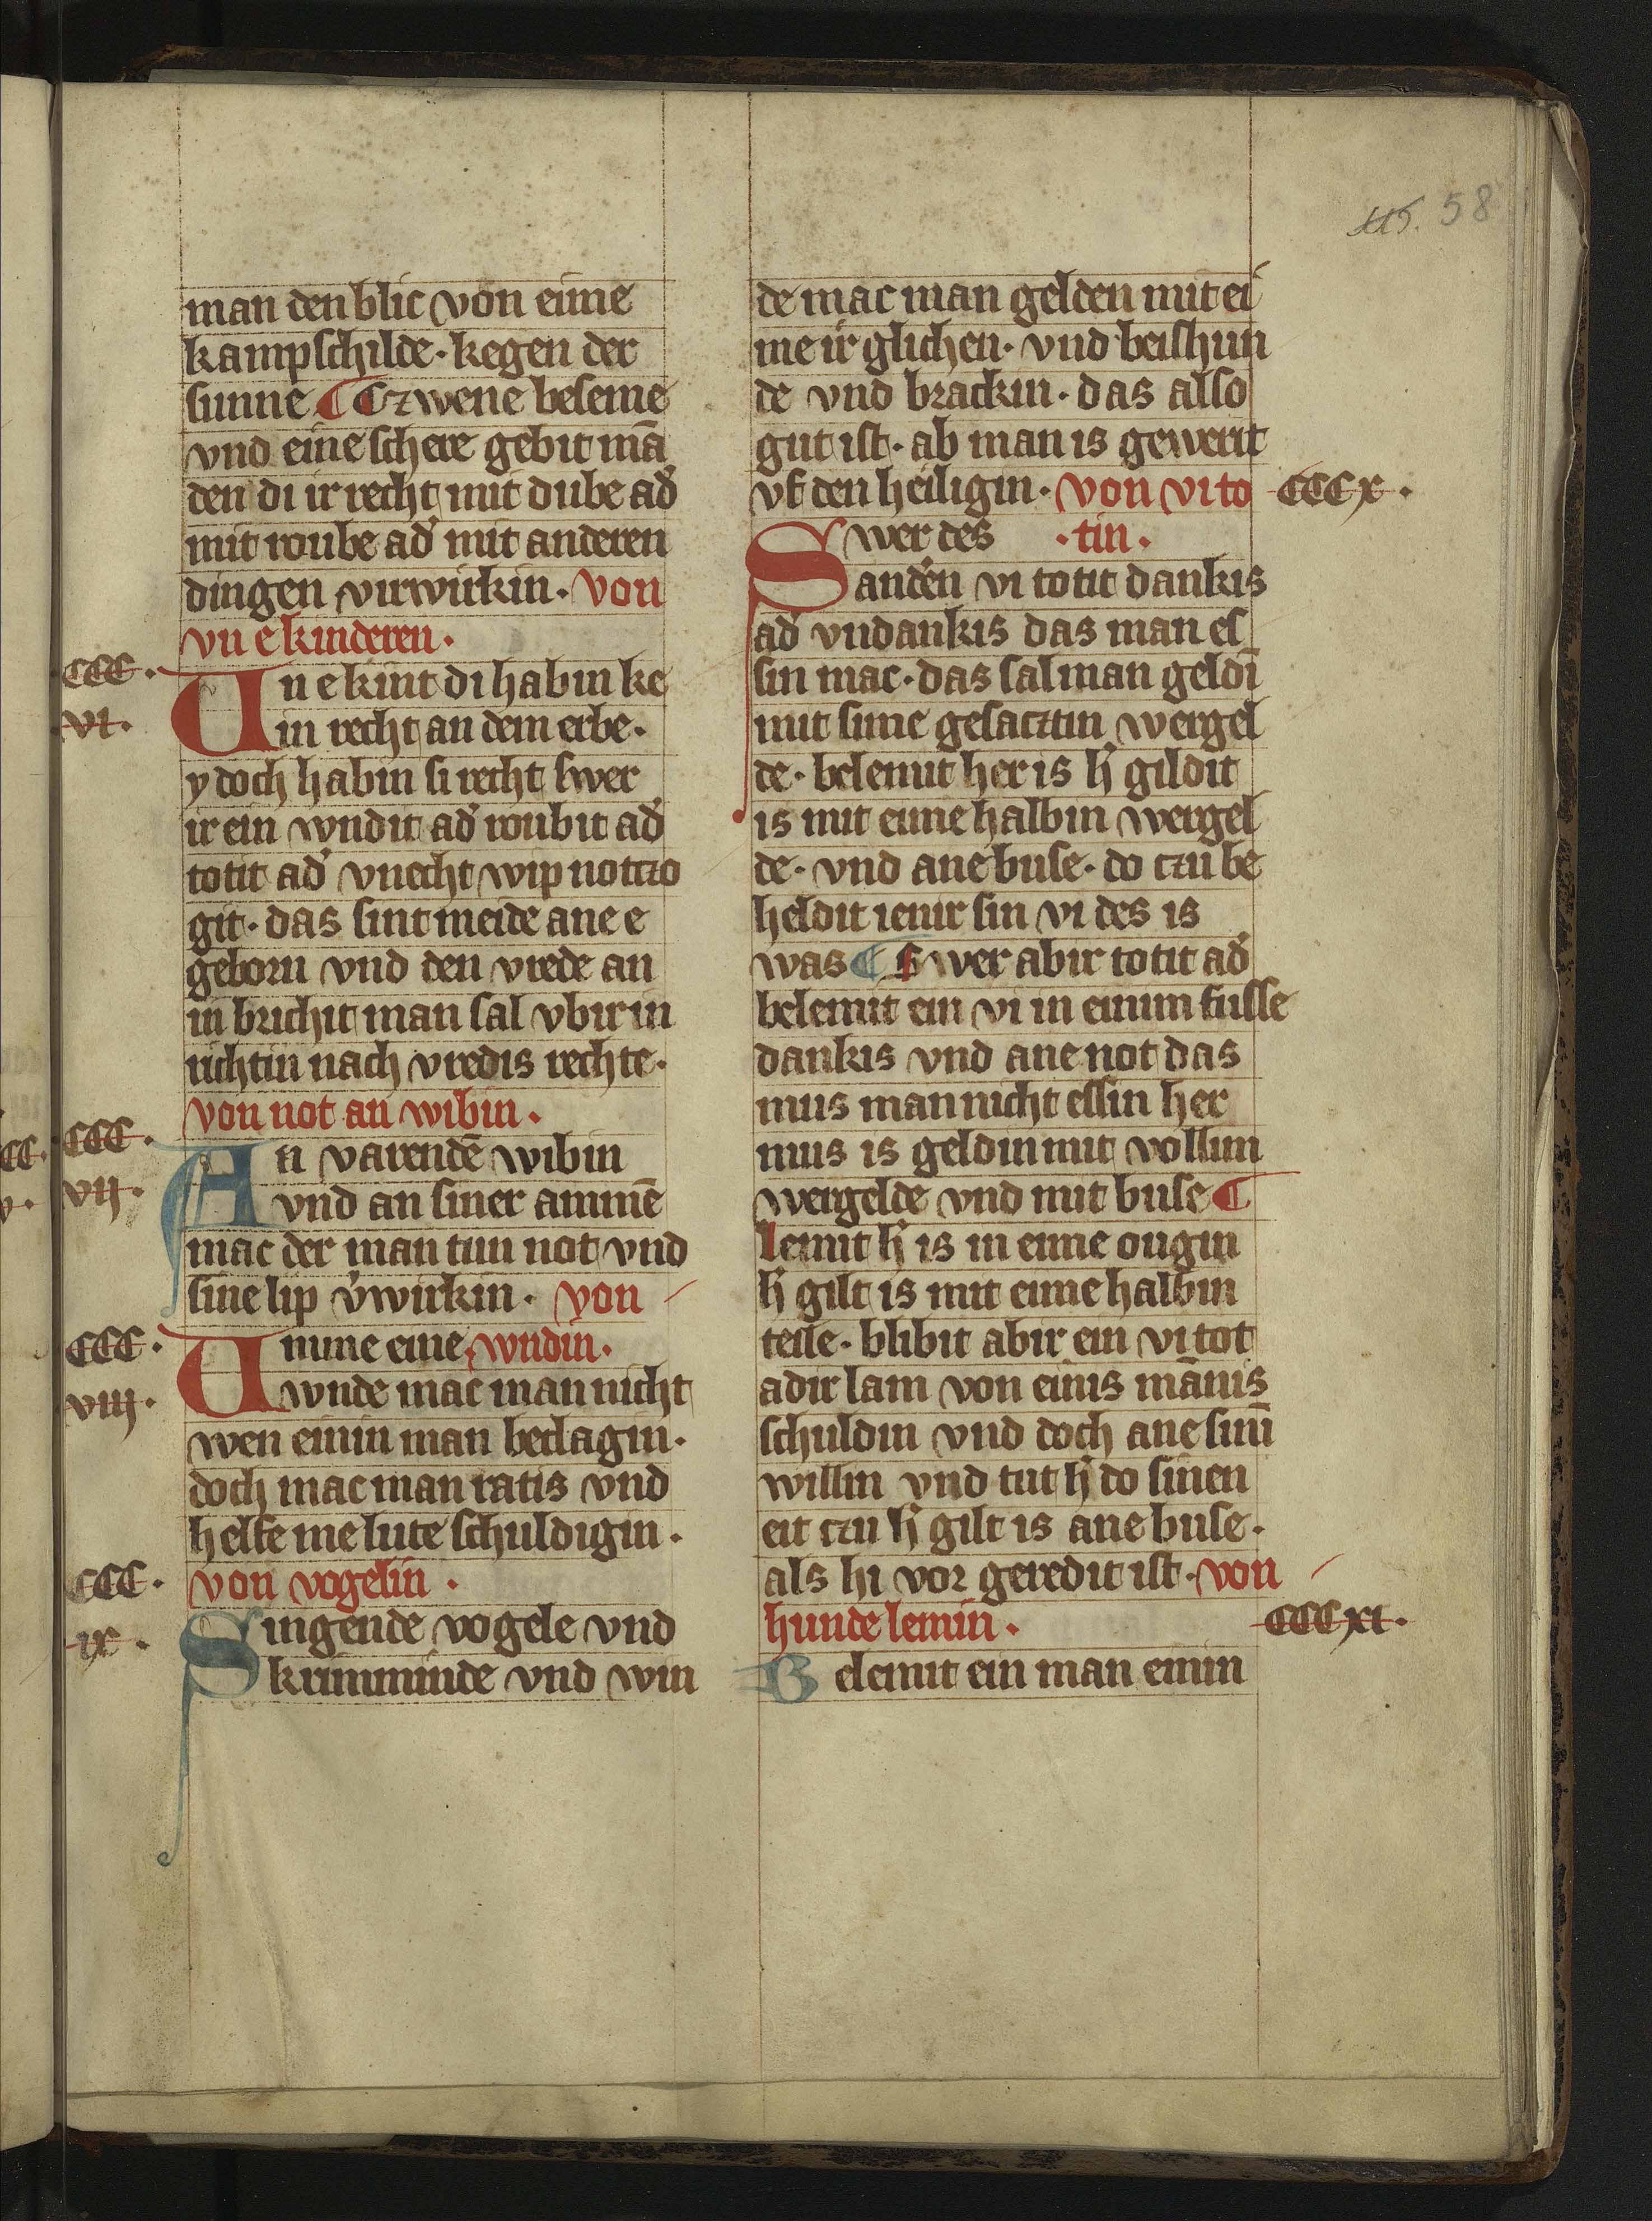 115. 58
man den blic von eime
kampschilde · kegen der
sunne ¶ Czwene beseme
vnd eine schere gebit mā
den di ir recht mit dube ad̓
mit roube ad̓ mit anderen
dingen virwirkin · von
vn e kinderen ·
ccc · vi ·
Vn e kint di habin ke
in recht an dem erbe ·
y doch habin si recht swer
ir ein wndit ad̓ roubit ad̓
totit ad̓ vnecht wip notczo
git · das sint meide ane e
geborn vnd den vrede an
in brichit man sal vbir in
richtin nach vredis rechte ·
von not an wibin ·
ccc · vij ·
An varendē wibin
vnd an siner ammē
mac der man tun not vnd
sine lip v̓wirkin · von
ccc · viij ·
Vmme eine wndin ·
wnde mac man nicht
wen einin man beclagin ·
doch mac man ratis vnd
helfe me lute schuldigin ·
von vogelin ·
ccc · ix ·
Singende vogele vnd
krimminde vnd win
de mac man gelden mit ei
me ir glichen · vnd beishun
de vnd brackin · das also
gut ist · ab man is gewerit
vf den heiligin · von vi to
cccx ·
Swer des · tin ·
andēn vi totit dankis
ad̓ vndankis das man es
sin mac · das sal man geldī
mit sime gesacztin wergel
de · belemit her is h̓ gildit
is mit eime halbin wergel
de · vnd ane buse · do czu be
heldit ienir sin vi des is
was ¶ Swer abir totit ad̓
belemit ein vi in einim fusse
dankis vnd ane not das
mus man nicht essin her
mus is geldin mit vollim
wergelde vnd mit buse ¶
lemit h̓ is in eime ougin
h̓ gilt is mit eime halbin
teile · blibit abir ein vi tot
adir lam von einis mānis
schuldin vnd doch ane sinī
willin vnd tut h̓ do sinen
eit czu h̓ gilt is ane buse ·
als hi vor geredit ist · von
hunde lemin ·
cccxi ·
Belemit ein man einin